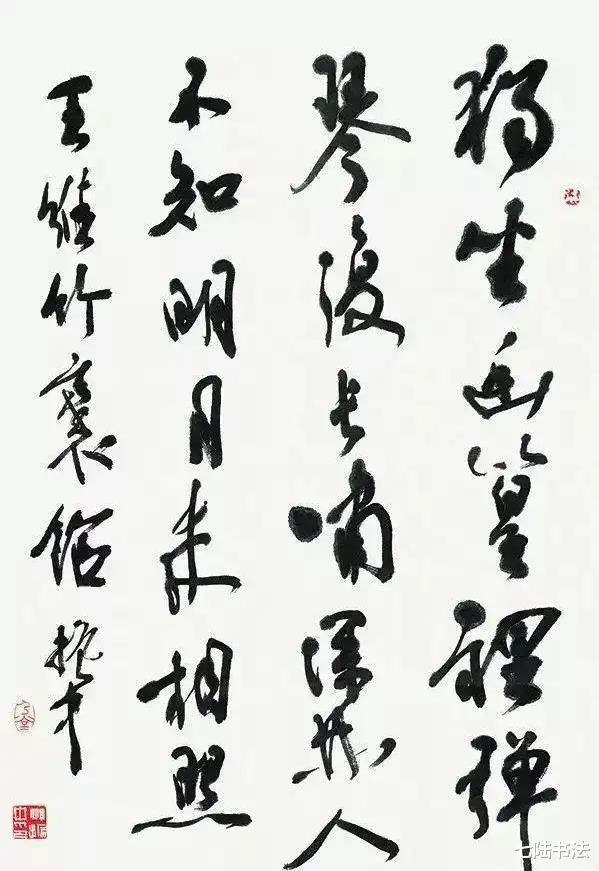 獨坐幽篁裡彈
琴復長嘯深林人
不知明月来相照
王維竹裏館
七陆书法